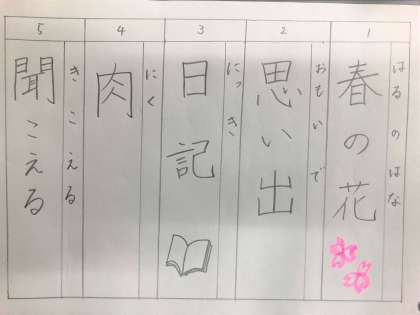 1
はるのはな
春の花
2
おもいで
思い出
3
にっき
日記
4
にく
肉
5
きこえる
聞こえる